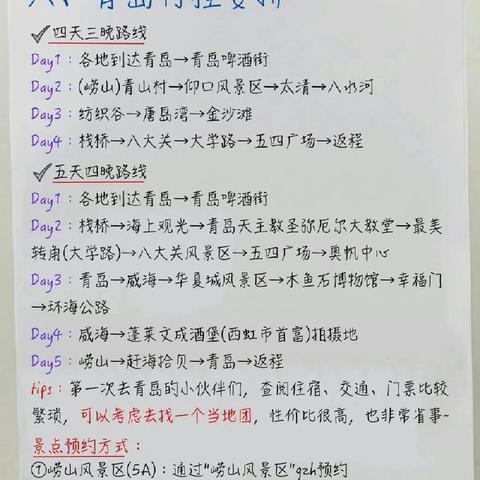 八、青岛行程安排
✓四天三晚路线
Day1：各地到达青岛→青岛啤酒街
Day2：(崂山)青山村→仰口风景区→太清→八水河
Day3：纺织谷→唐岛湾→金沙滩
Day4：栈桥→八大关→大学路→五四广场→返程
✓五天四晚路线
Day1：各地到达青岛→青岛啤酒街
Day2：栈桥→海上观光→青岛天主教圣弥厄尔大教堂→最美
转角(大学路)→八大关风景区→五四广场→奥帆中心
Day3：青岛→威海→华夏城风景区→木鱼石博物馆→幸福门
→环海公路
Day4：威海→蓬莱文成酒堡(西虹市首富)拍摄地
Day5：崂山→赶海拾贝→青岛→返程
tips：第一次去青岛的小伙伴们，查阅住宿、交通、门票比较
繁琐，可以考虑去找一个当地团，性价比很高，也非常省事~
景点预约方式：
①崂山风景区(5A)：通过"崂山风景区"gzh预约